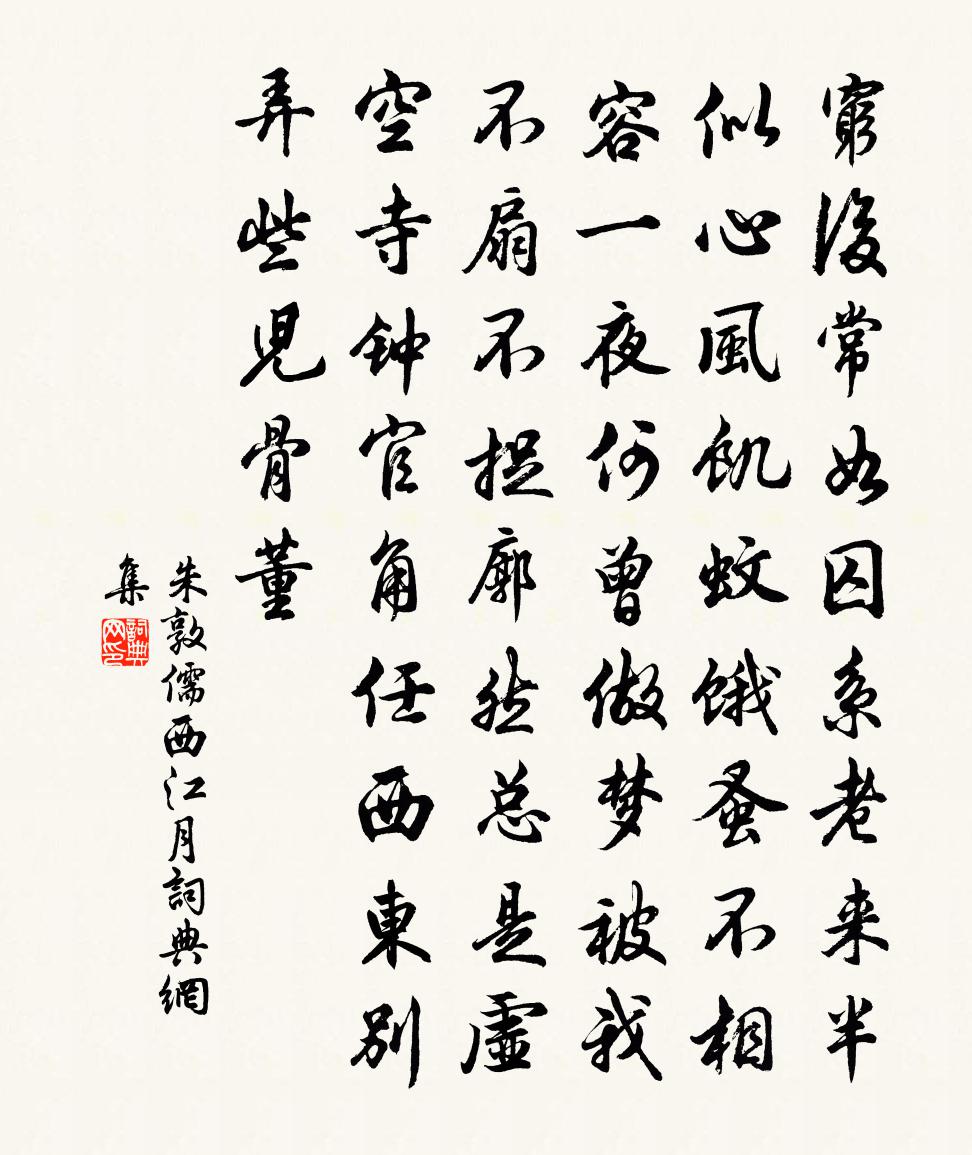 窮後常如囚系老来半
似心風飢蚊饿蚤不相
容一夜何曾做梦被我
不扇不捉廓然总是虚
空寺钟官角任西東別
弄些児骨董
朱敦儒西江月詞典網
集
詞典网印